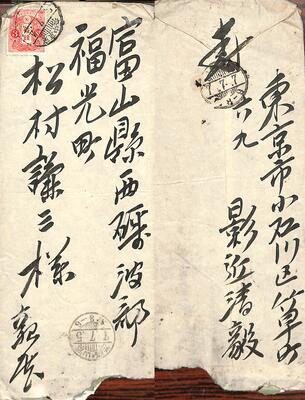 富山縣西礪波郡
福光町
松村謙三様
親展
東京市小石川区竹早町
六九
影近清毅